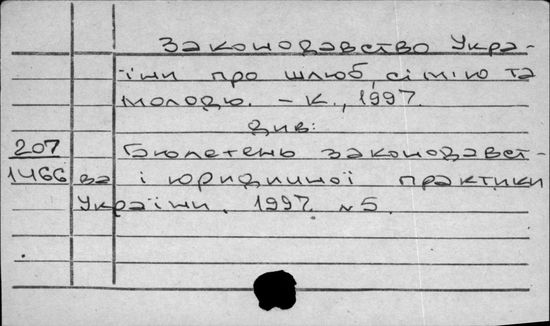 Законодавство Укра-
їни про шлюб, сім'ю та
молодь. – К., 1997.
див:
207 Бюлетень законодавст-
1466 ва і юридичної практики
України. 1997. №5.